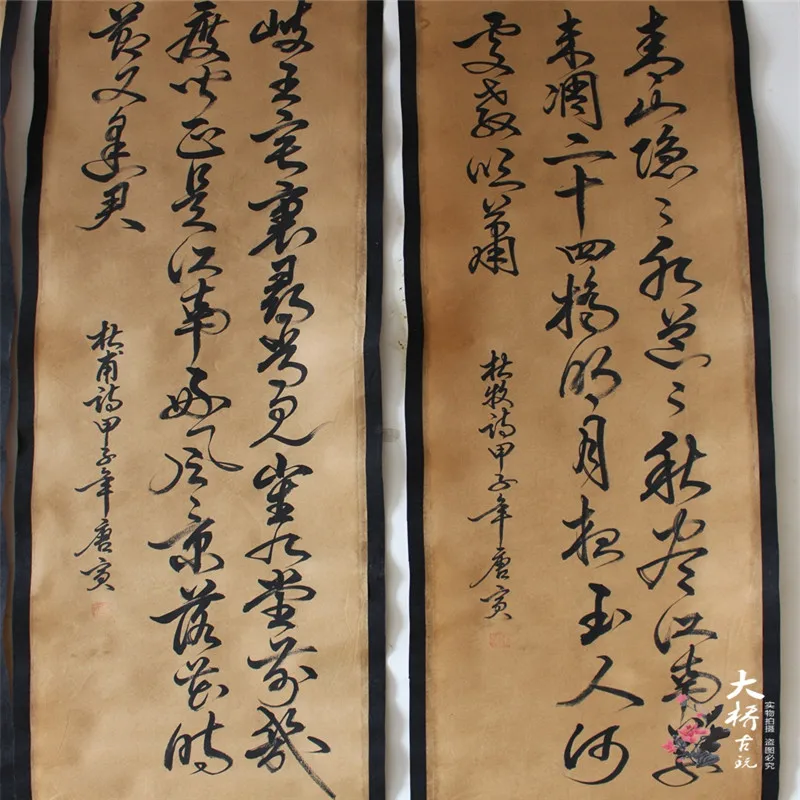 青山隐〻水迢〻秋尽江南草
未凋二十四橋明月夜玉人何
處教吹簫
杜牧詩甲子年唐寅
岐王宅裏尋常見崔九堂前幾
度聞正是江南好風景落花時
節又逢君
杜甫詩甲子年唐寅
大橋古玩
实物拍摄
盗图必究